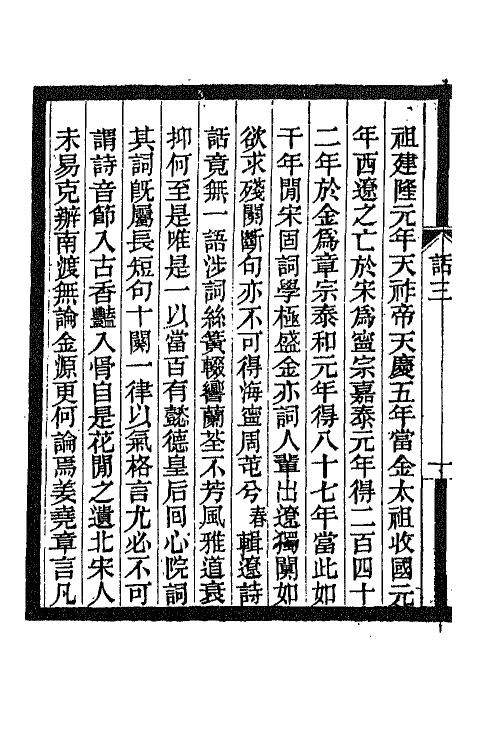 話三
十
祖建隆元年天祚帝天慶五年當金太祖收國元
年西遼之亡於宋爲寧宗嘉泰元年得二百四十
二年於金爲章宗泰和元年得八十七年當此如
干年閒宋固詞學極盛金亦詞人輩出遼獨闃如
欲求殘闋斷句亦不可得海寧周芚兮春輯遼詩
話竟無一語涉詞絲簧輟響蘭荃不芳風雅道衰
抑何至是唯是一以當百有懿德皇后回心院詞
其詞旣屬長短句十闋一律以氣格言尤必不可
謂詩音節入古香豔入骨自是花閒之遺北宋人
未易克辦南渡無論金源更何論焉姜堯章言凡